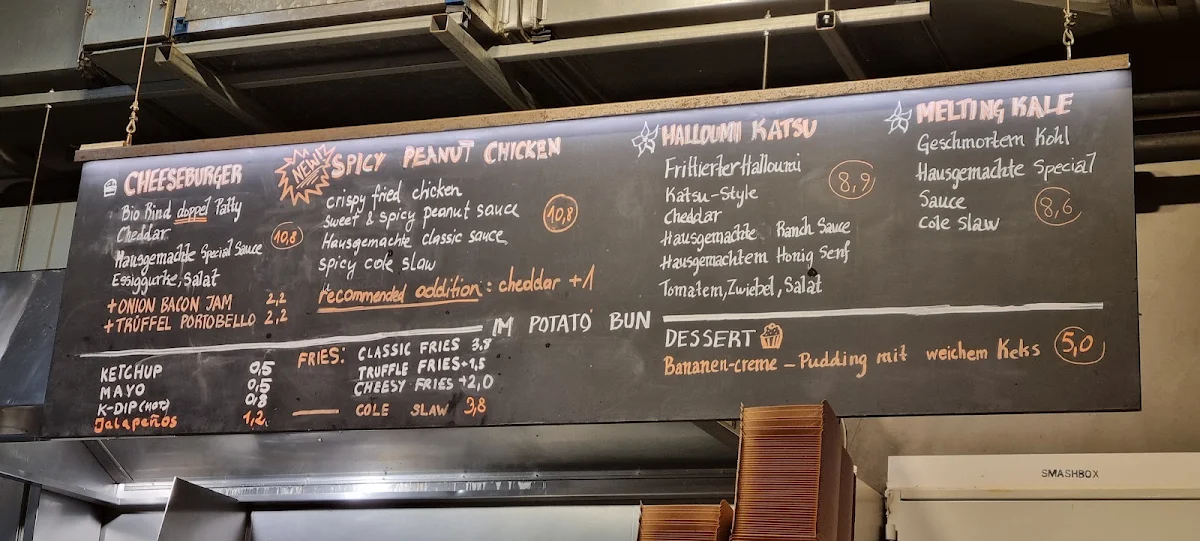 CHEESEBURGER
Bio Rind doppel Patty
Cheddar
Hausgemachte Special Sauce
Essiggurke, Salat
10,8
+ ONION BACON JAM 2,2
+ TRÜFFEL PORTOBELLO 2,2
NEW!
SPICY PEANUT CHICKEN
crispy fried chicken
sweet & spicy peanut sauce
Hausgemachte classic sauce
spicy cole slaw
10,8
recommended addition: cheddar +1
HALLOUMI KATSU
Frittierter Halloumi
Katsu-Style
Cheddar
Hausgemachte Ranch Sauce
Hausgemachtem Honig Senf
Tomatem, Zwiebel, Salat
8,9
MELTING KALE
Geschmortem Kohl
Hausgemachte Special
Sauce
Cole Slaw
8,6
IM POTATO BUN
KETCHUP 0,5
MAYO 0,5
K-DIP (HOT) 0,8
Jalapeños 1,2
FRIES: CLASSIC FRIES 3,8
TRUFFLE FRIES +1,5
CHEESY FRIES +2,0
COLE SLAW 3,8
DESSERT
Bananen-creme - Pudding mit weichem Keks 5,0
SMASHBOX